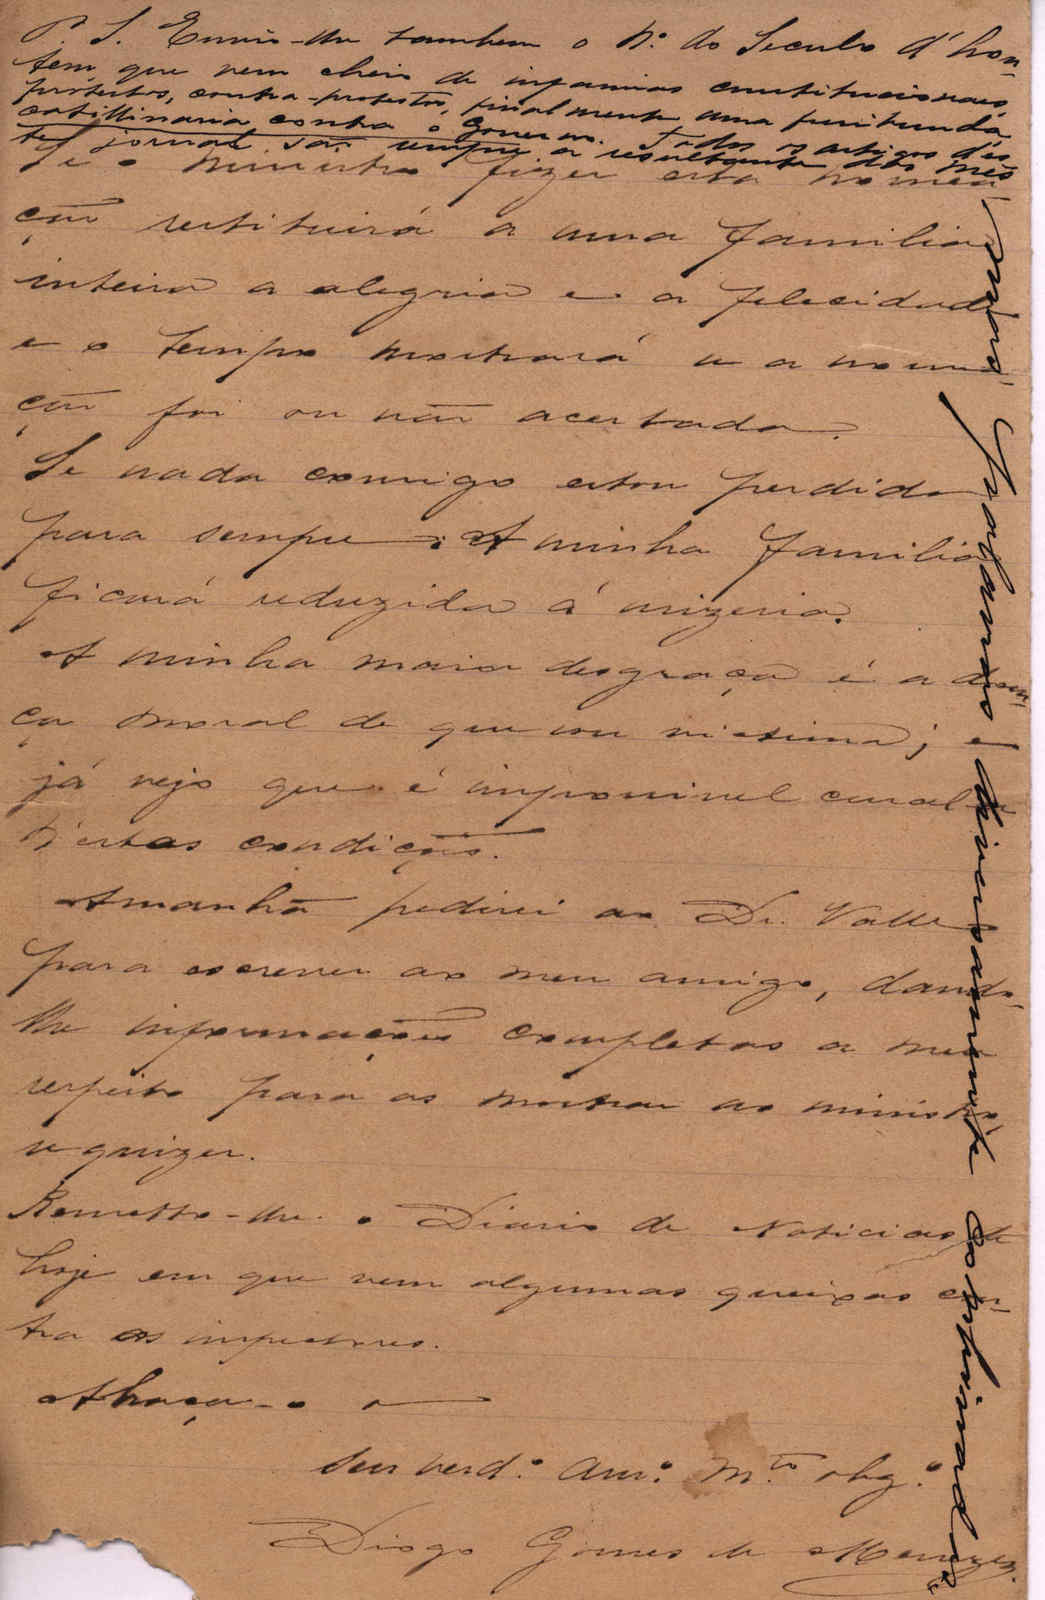 P. S. Envio-lhe tambem o Nº. do Seculo d'hon-
tem que vem cheio de infamias constitucionaes
protestos, contra-protestos, finalmente uma furibunda
catillinaria contra o Governo. Todos os artigos d'es-
te jornal são sempre a resultante das mes
Se o ministro fizer esta nomea-
ção restituirá a uma familia
inteira a alegria e a felecidade
e o tempo mostrará se a nomea-
ção foi ou não acertada.
Se nada consigo estou perdido
para sempre. A minha familia
ficará reduzida á mizeria.
A minha maior desgraça é a doen-
ça moral de que sou victima; e
já vejo que é impossivel cural-a
N'estas condições.
Amanhã pedirei ao Dr. Valle
para escrever ao meu amigo, dando-
lhe informações completas a meu
respeito para as mostrar ao ministro
se quizer.
Remetto-lhe o Diario de Noticias de
hoje em que vem algumas queixas con-
tra os inspectores.
Abraça-o o
Seu verd.º am.º M.to obg.º
Diogo Gomes de Menezes.
mas palavras diversamente combinadas.